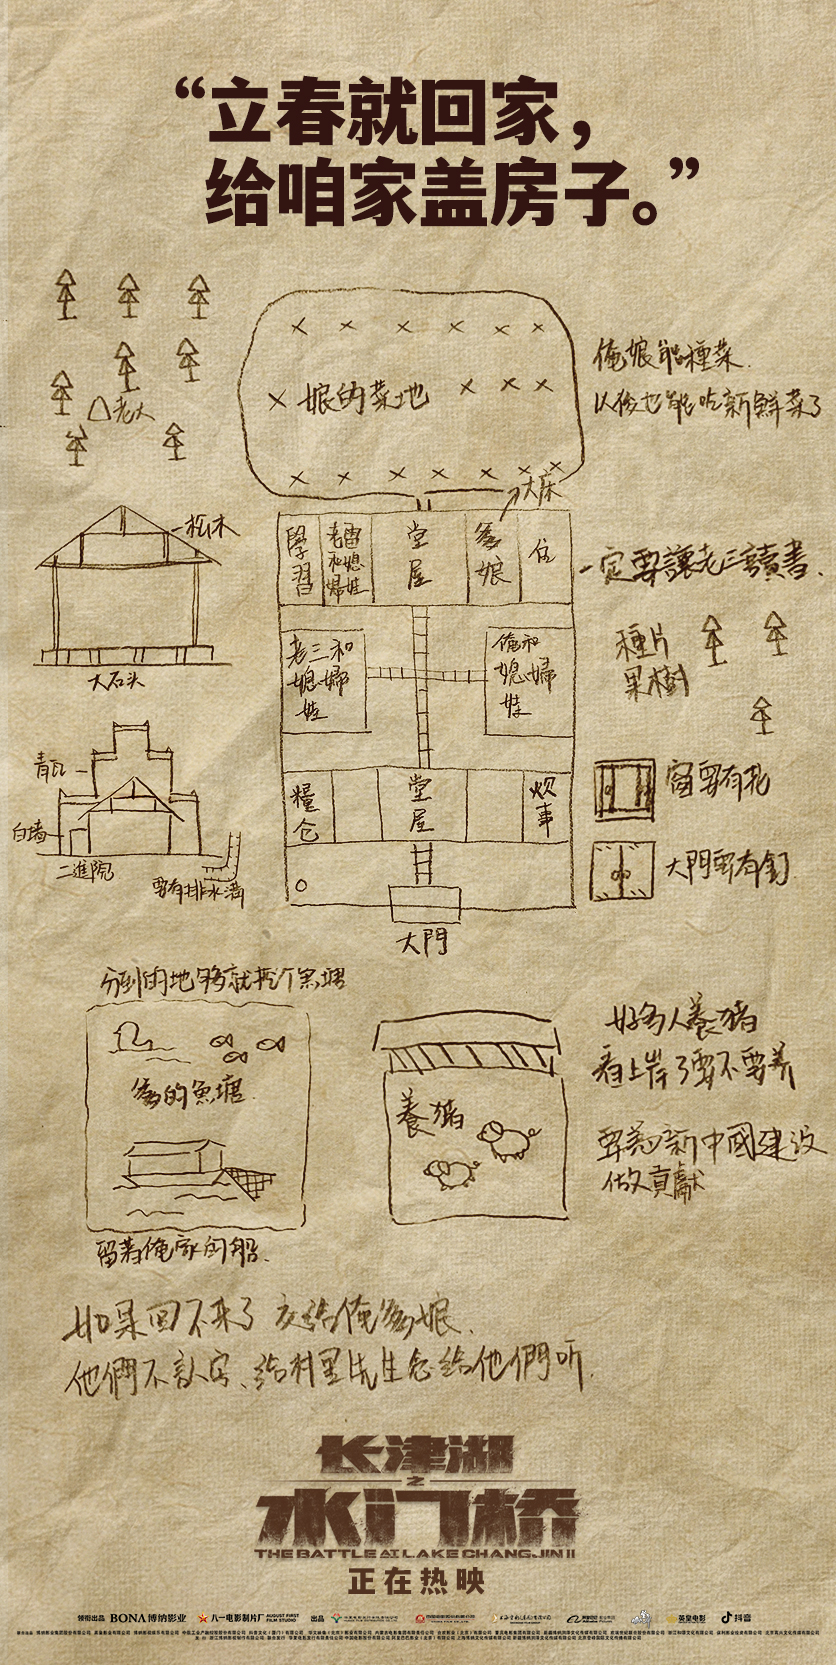 “立春就回家，
给咱家盖房子。”
娘的菜地
俺娘能種菜.
以後也能吃新鮮菜了
老大
大床
松木
學習
堂屋
爹娘
住
一定要讓老三讀書.
大石头
老三和
媳婦
娃
俺和
媳婦
娃
種片
果樹
青瓦
白墙
二進院
要有排水溝
糧仓
堂屋
炊事
窗要有花
大門要有釘
大門
分到的地够就挖个魚塘
爹的魚塘.
留着俺家的船.
養猪
好多人養猪
看上岸了要不要养
要為新中國建设
做貢獻
如果回不来了 交给俺爹娘.
他們不認字、给村里先生念给他們听.
长津湖
之
水门桥
THE BATTLE AT LAKE CHANGJIN II
正在热映
领衔出品 BONA博纳影业 八一电影制片厂 AUGUST FIRST FILM STUDIO 出品 英皇电影 抖音